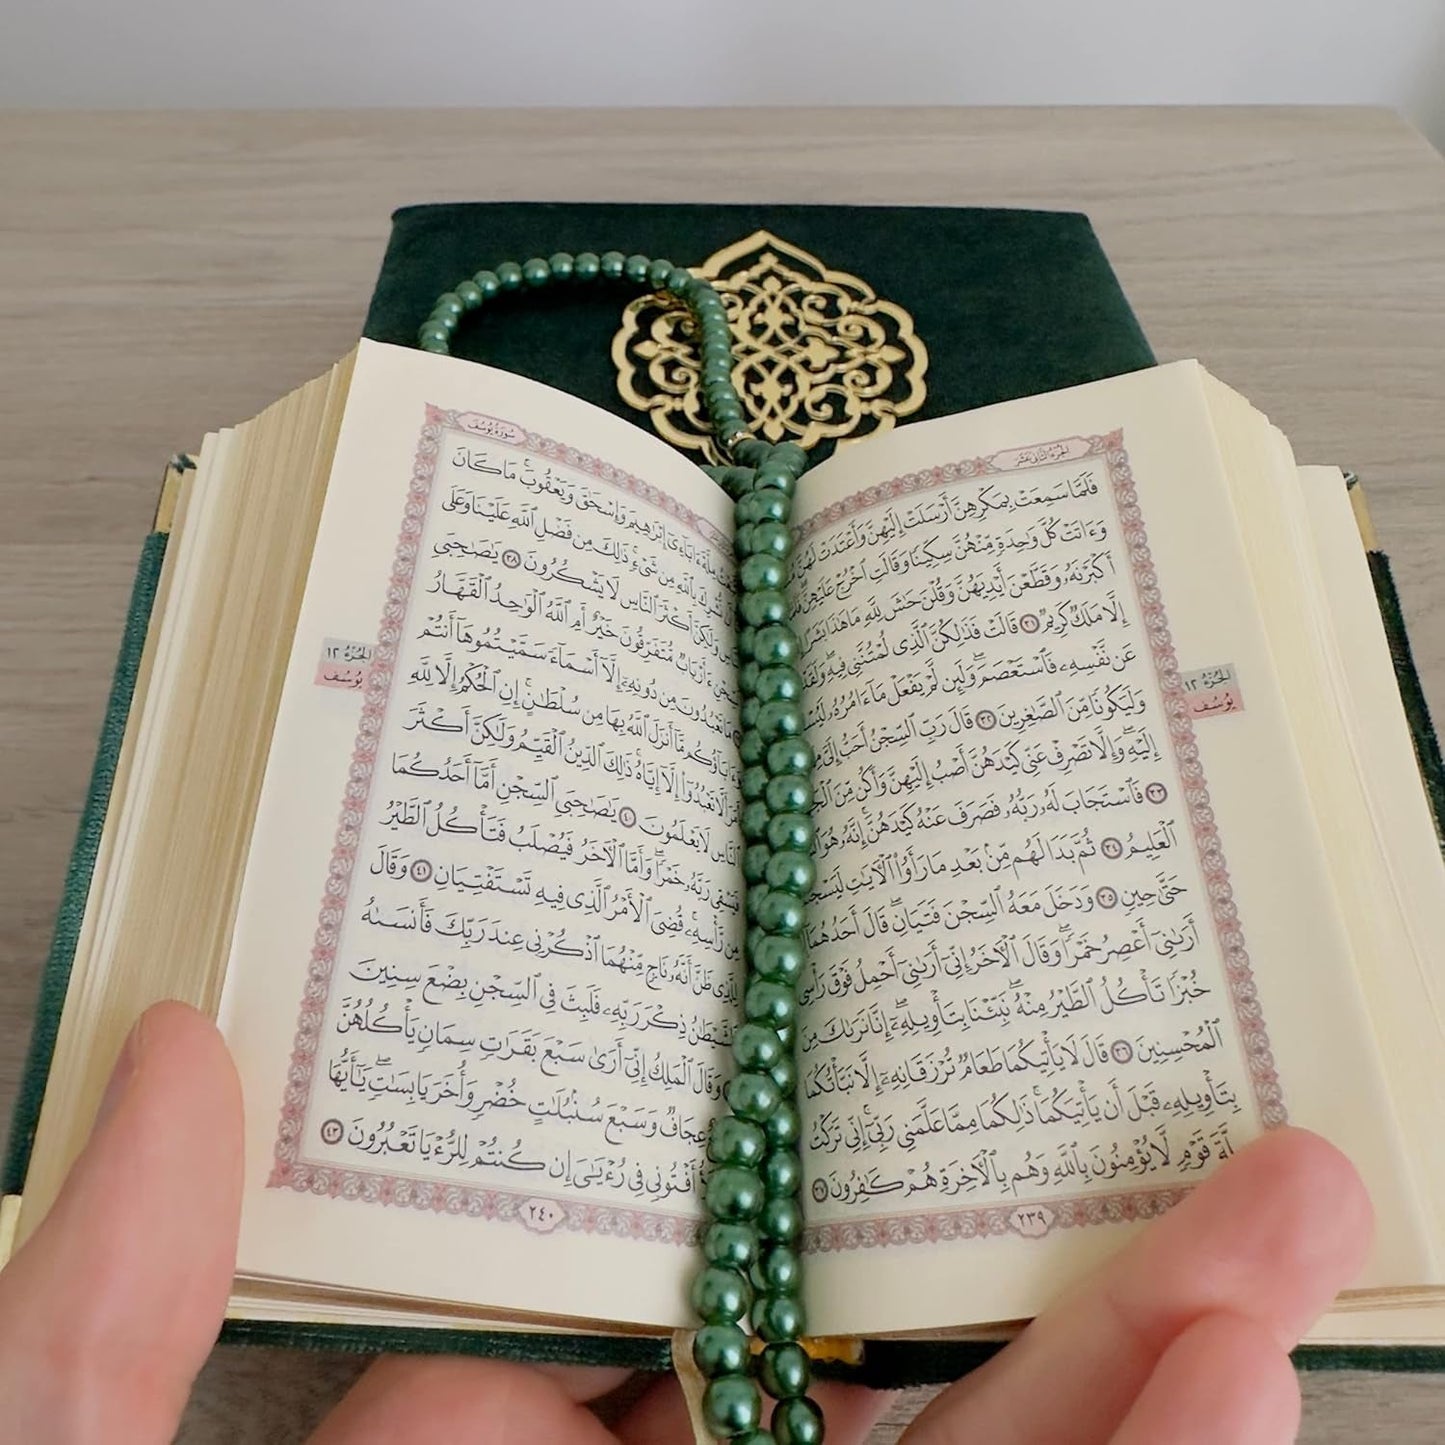 الجزء الثاني عشر
فَلَمَّا سَمِعَتْ بِمَكْرِهِنَّ أَرْسَلَتْ إِلَيْهِنَّ وَأَعْتَدَتْ لَهُنَّ
وَءَاتَتْ كُلَّ وَٰحِدَةٍ مِّنْهُنَّ سِكِّينًا وَقَالَتِ ٱخْرُجْ عَلَيْهِنَّ
أَكْبَرْنَهُۥ وَقَطَّعْنَ أَيْدِيَهُنَّ وَقُلْنَ حَٰشَ لِلَّهِ مَا هَٰذَا بَشَرًا
إِلَّا مَلَكٌ كَرِيمٌ ٣١ قَالَتْ فَذَٰلِكُنَّ ٱلَّذِى لُمْتُنَّنِى فِيهِ
عَن نَّفْسِهِۦ فَٱسْتَعْصَمَ وَلَئِن لَّمْ يَفْعَلْ مَآ ءَامُرُهُۥ
وَلَيَكُونًا مِّنَ ٱلصَّٰغِرِينَ ٣٢ قَالَ رَبِّ ٱلسِّجْنُ أَحَبُّ إِلَىَّ
إِلَيْهِ وَإِلَّا تَصْرِفْ عَنِّى كَيْدَهُنَّ أَصْبُ إِلَيْهِنَّ وَأَكُن مِّنَ
٣٣ فَٱسْتَجَابَ لَهُۥ رَبُّهُۥ فَصَرَفَ عَنْهُ كَيْدَهُنَّ إِنَّهُۥ هُوَ
ٱلْعَلِيمُ ٣٤ ثُمَّ بَدَا لَهُم مِّنۢ بَعْدِ مَا رَأَوُا۟ ٱلْـَٔايَٰتِ
حَتَّىٰ حِينٍ ٣٥ وَدَخَلَ مَعَهُ ٱلسِّجْنَ فَتَيَانِ قَالَ أَحَدُهُمَآ
أَرَىٰنِىٓ أَعْصِرُ خَمْرًا وَقَالَ ٱلْـَٔاخَرُ إِنِّىٓ أَرَىٰنِىٓ أَحْمِلُ فَوْقَ رَأْسِى
خُبْزًا تَأْكُلُ ٱلطَّيْرُ مِنْهُ نَبِّئْنَا بِتَأْوِيلِهِۦٓ إِنَّا نَرَىٰكَ مِنَ
ٱلْمُحْسِنِينَ ٣٦ قَالَ لَا يَأْتِيكُمَا طَعَامٌ تُرْزَقَانِهِۦٓ إِلَّا نَبَّأْتُكُمَا
بِتَأْوِيلِهِۦ قَبْلَ أَن يَأْتِيَكُمَا ذَٰلِكُمَا مِمَّا عَلَّمَنِى رَبِّىٓ إِنِّى تَرَكْتُ
مِلَّةَ قَوْمٍ لَّا يُؤْمِنُونَ بِٱللَّهِ وَهُم بِٱلْـَٔاخِرَةِ هُمْ كَٰفِرُونَ ٣٧
٢٣٩
الجزء ١٢
يوسف
سورة يوسف
مِلَّةَ ءَابَآءِىٓ إِبْرَٰهِيمَ وَإِسْحَٰقَ وَيَعْقُوبَ مَا كَانَ
نُّشْرِكَ بِٱللَّهِ مِن شَىْءٍ ذَٰلِكَ مِن فَضْلِ ٱللَّهِ عَلَيْنَا وَعَلَى
وَلَٰكِنَّ أَكْثَرَ ٱلنَّاسِ لَا يَشْكُرُونَ ٣٨ يَٰصَٰحِبَىِ
ءَأَرْبَابٌ مُّتَفَرِّقُونَ خَيْرٌ أَمِ ٱللَّهُ ٱلْوَٰحِدُ ٱلْقَهَّارُ
مَا تَعْبُدُونَ مِن دُونِهِۦٓ إِلَّآ أَسْمَآءً سَمَّيْتُمُوهَآ أَنتُمْ
وَءَابَآؤُكُم مَّآ أَنزَلَ ٱللَّهُ بِهَا مِن سُلْطَٰنٍ إِنِ ٱلْحُكْمُ إِلَّا لِلَّهِ
أَمَرَ أَلَّا تَعْبُدُوٓا۟ إِلَّآ إِيَّاهُ ذَٰلِكَ ٱلدِّينُ ٱلْقَيِّمُ وَلَٰكِنَّ أَكْثَرَ
ٱلنَّاسِ لَا يَعْلَمُونَ ٤٠ يَٰصَٰحِبَىِ ٱلسِّجْنِ أَمَّآ أَحَدُكُمَا
فَيَسْقِى رَبَّهُۥ خَمْرًا وَأَمَّا ٱلْـَٔاخَرُ فَيُصْلَبُ فَتَأْكُلُ ٱلطَّيْرُ
مِن رَّأْسِهِۦ قُضِىَ ٱلْأَمْرُ ٱلَّذِى فِيهِ تَسْتَفْتِيَانِ ٤١ وَقَالَ
لِلَّذِى ظَنَّ أَنَّهُۥ نَاجٍ مِّنْهُمَا ٱذْكُرْنِى عِندَ رَبِّكَ فَأَنسَىٰهُ
ٱلشَّيْطَٰنُ ذِكْرَ رَبِّهِۦ فَلَبِثَ فِى ٱلسِّجْنِ بِضْعَ سِنِينَ
وَقَالَ ٱلْمَلِكُ إِنِّىٓ أَرَىٰ سَبْعَ بَقَرَٰتٍ سِمَانٍ يَأْكُلُهُنَّ
عِجَافٌ وَسَبْعَ سُنۢبُلَٰتٍ خُضْرٍ وَأُخَرَ يَابِسَٰتٍ يَٰٓأَيُّهَا
أَفْتُونِى فِى رُءْيَٰىَ إِن كُنتُمْ لِلرُّءْيَا تَعْبُرُونَ ٤٣
٢٤٠
الجزء ١٢
يوسف